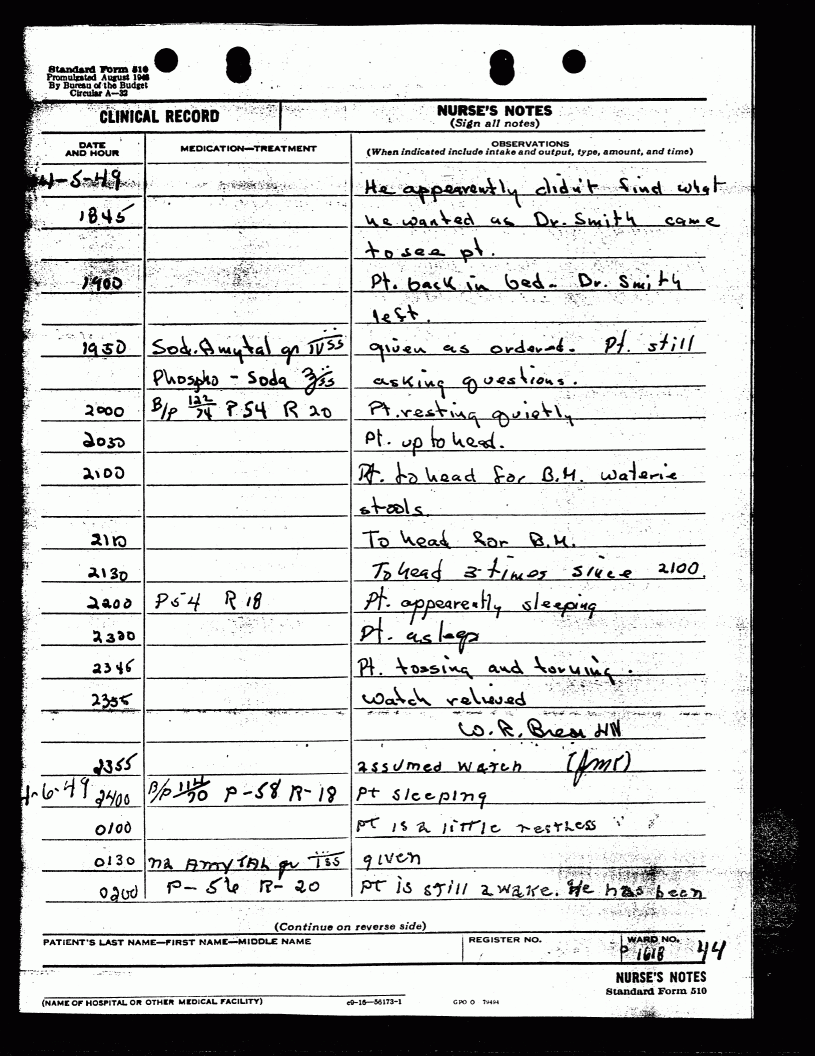 Standard Form 510
Promulgated August 1948
By Bureau of the Budget
Circular A—32
CLINICAL RECORD
NURSE'S NOTES
(Sign all notes)
DATE AND HOUR
MEDICATION—TREATMENT
OBSERVATIONS
(When indicated include intake and output, type, amount, and time)
4-5-49 He appearently didn't find what
1845 he wanted as Dr. Smith came
to see pt.
1900 Pt. back in bed - Dr. Smith
left.
1950 Sod. Amytal gr IVss given as ordered. Pt. still
Phospho - Soda ℥ss asking questions.
2000 B/p 122/74 P 54 R 20 Pt. resting quietly
2030 Pt. up to head.
2100 Pt. to head for B.M. waterie
stools.
2110 To head for B.M.
2130 To head 3 times since 2100.
2200 P 54 R 18 Pt. appearently sleeping
2300 Pt. asleep
2345 Pt. tossing and turning.
2355 Watch relieved
W.R. HN
2355 assumed watch
4-6-49 2400 B/p 114/70 P-58 R-18 Pt sleeping
0100 Pt is a little restless
0130 na AmyTAL gr given
0200 P-56 R-20 Pt is still awake. He has been
(Continue on reverse side)
PATIENT'S LAST NAME—FIRST NAME—MIDDLE NAME
REGISTER NO.
WARD NO.
1618 44
NURSE'S NOTES
Standard Form 510
(NAME OF HOSPITAL OR OTHER MEDICAL FACILITY)
c9-16—56173-1
GPO O 79494